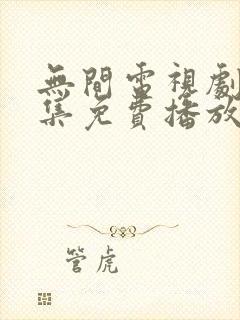 無間電視劇
集免費播放
管虎